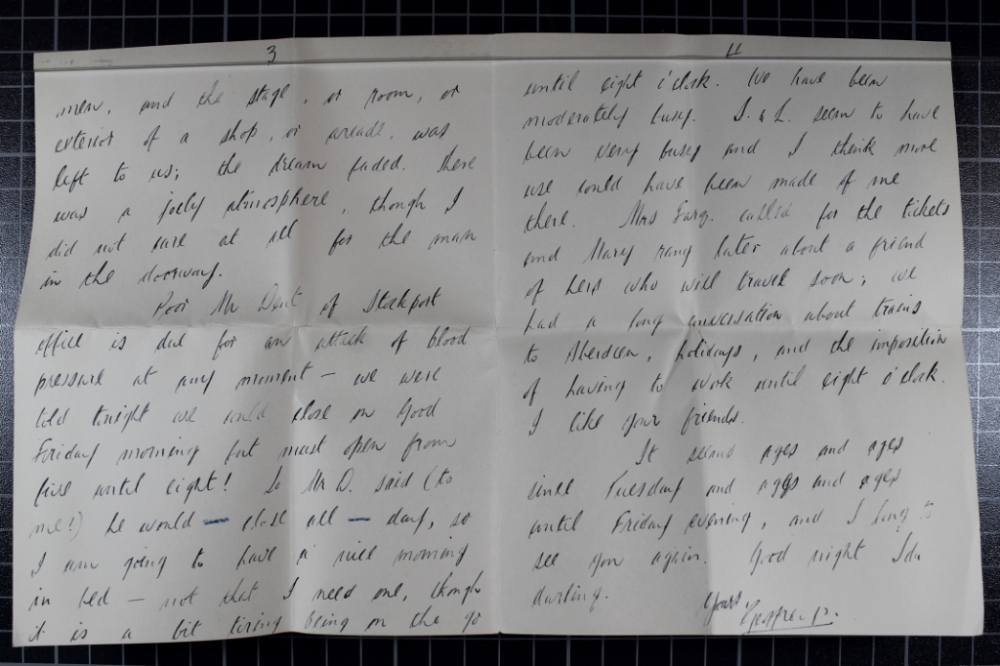 3
men, and the stage, or room, or
exterior of a shop, or arcade, was
left to us; the dream faded. There
was a jolly atmosphere, though I
did not care at all for the man
in the doorway.
Poor Mr Dent of Stockport
office is due for an attack of blood
pressure at any moment — we were
told tonight we could close on Good
Friday morning but must open from
five until eight! So Mr D. said (to
me!) he would — close all — day, so
I am going to have a nice morning
in bed — not that I need one, though
it is a bit tiring being on the go
4
until eight o'clock. We have been
moderately busy. D. & L. seem to have
been very busy and I think more
use could have been made of me
there. Mrs called for the tickets
and Mary rang later about a friend
of hers who will travel soon; we
had a long conversation about trains
to Aberdeen, holidays, and the imposition
of having to work until eight o'clock.
I like your friends.
It seems ages and ages
since Tuesday and ages and ages
until Friday evening, and I long to
see you again. Good night Ida
darling.
Yours,
Geoffrey